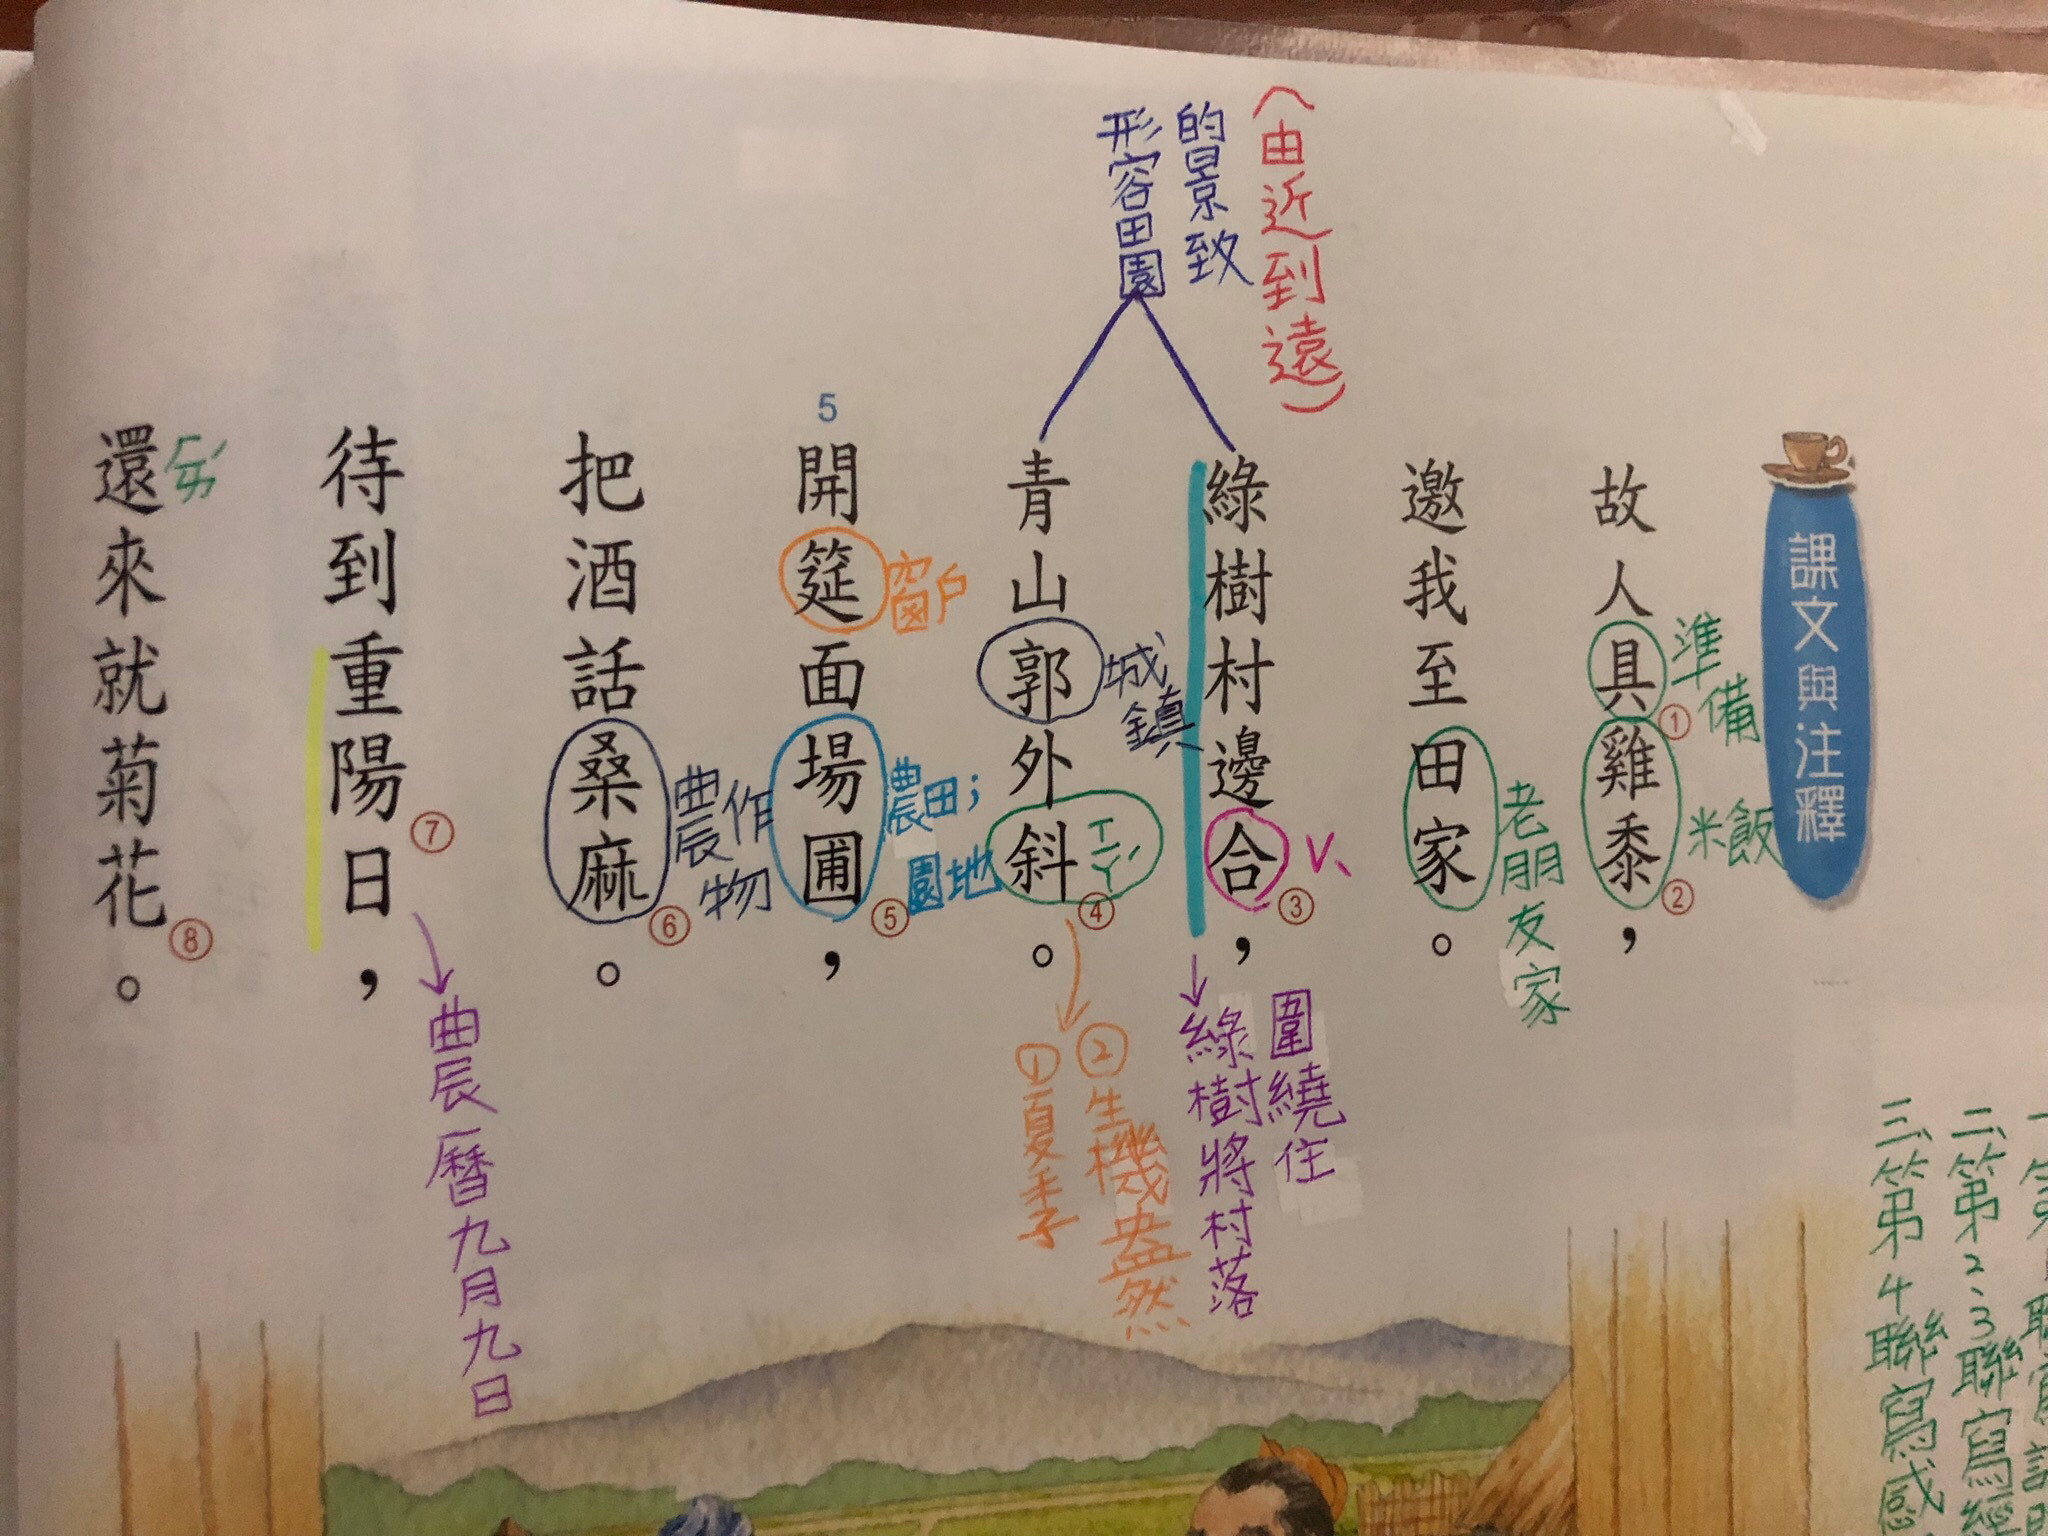 課文與注釋
故人具雞黍，
①
②
準備
米飯
邀我至田家。
老朋友家
（由近到遠）
形容田園
的景致
綠樹村邊合，
③
V、
綠樹將村落
圍繞住
青山郭外斜。
④
城鎮
ㄒㄧㄚˊ
①夏季
②生機盎然
5
開筵面場圃，
⑤
窗戶
農田；
園地
把酒話桑麻。
⑥
農作物
待到重陽日，
⑦
農曆九月九日
還來就菊花。
⑧
ㄏㄞˊ
二、第2、3聯寫
三、第4聯寫感